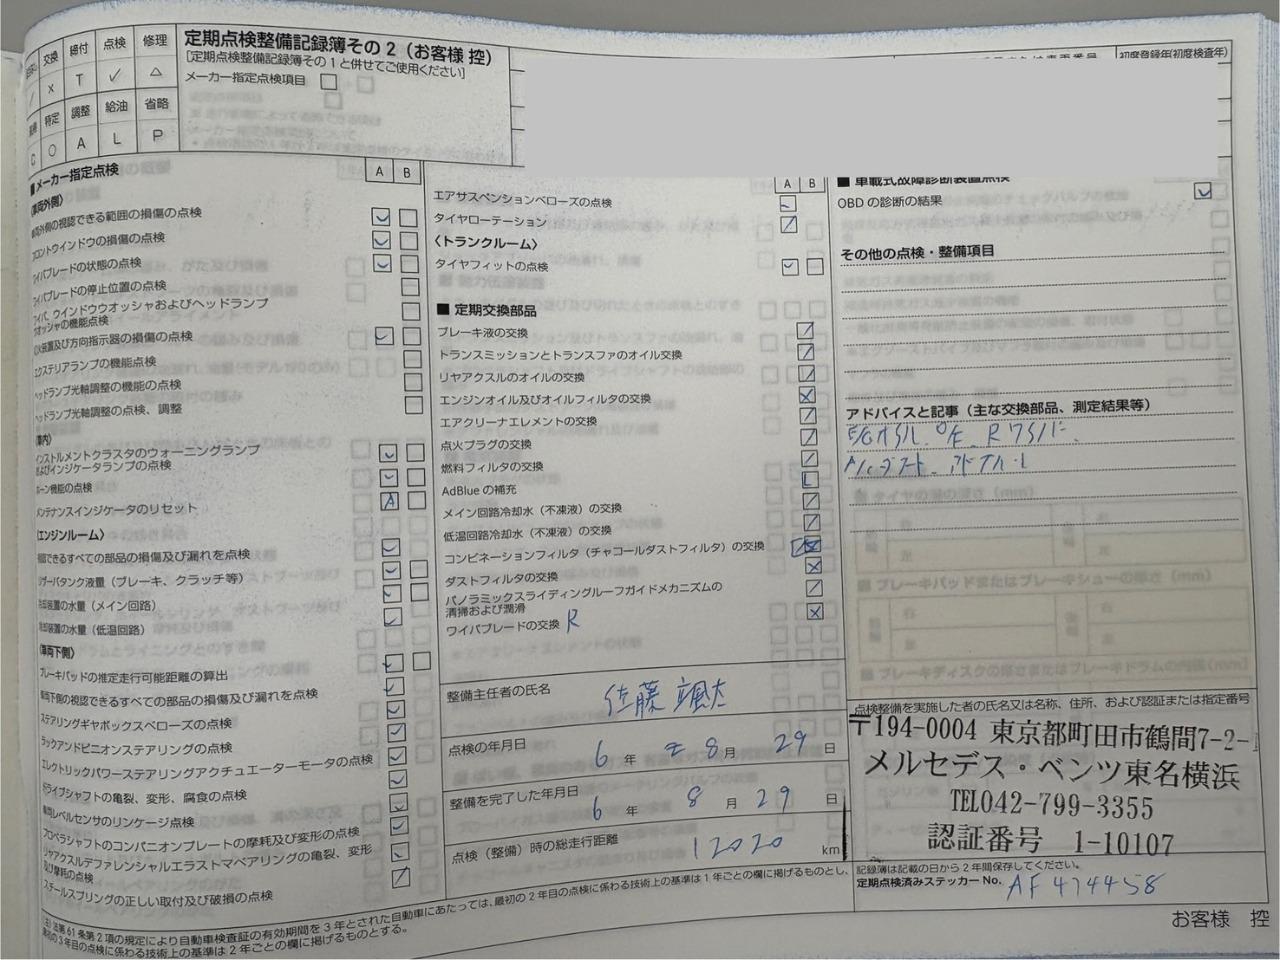 交換 締付 点検 修理
/ × T ✓ △
特定 調整 給油 省略
C ○ A L P
定期点検整備記録簿その2（お客様 控）
[定期点検整備記録簿その1と併せてご使用ください]
メーカー指定点検項目
初度登録年(初度検査年)
■メーカー指定点検
A B
〈車両外側〉
車両外側の視認できる範囲の損傷の点検
フロントウインドウの損傷の点検
ワイパブレードの状態の点検
ワイパブレードの停止位置の点検
ワイパ、ウインドウウオッシャおよびヘッドランプ
ウオッシャの機能点検
灯火装置及び方向指示器の損傷の点検
エクステリアランプの機能点検
ヘッドランプ光軸調整の機能の点検
ヘッドランプ光軸調整の点検、調整
〈車内〉
インストルメントクラスタのウォーニングランプ
およびインジケータランプの点検
ホーン機能の点検
メンテナンスインジケータのリセット A
〈エンジンルーム〉
視認できるすべての部品の損傷及び漏れを点検
リザーバタンク液量（ブレーキ、クラッチ等）
冷却装置の水量（メイン回路）
冷却装置の水量（低温回路）
〈車両下側〉
ブレーキパッドの推定走行可能距離の算出
車両下側の視認できるすべての部品の損傷及び漏れを点検
ステアリングギヤボックスベローズの点検
ラックアンドピニオンステアリングの点検
エレクトリックパワーステアリングアクチュエーターモータの点検
ドライブシャフトの亀裂、変形、腐食の点検
車両レベルセンサのリンケージ点検
プロペラシャフトのコンパニオンプレートの摩耗及び変形の点検
リヤアクスルデファレンシャルエラストマベアリングの亀裂、変形
及び摩耗の点検
スチールスプリングの正しい取付及び破損の点検
A B
エアサスペンションベローズの点検
タイヤローテーション
〈トランクルーム〉
タイヤフィットの点検
■ 定期交換部品
ブレーキ液の交換
トランスミッションとトランスファのオイル交換
リヤアクスルのオイルの交換
エンジンオイル及びオイルフィルタの交換
エアクリーナエレメントの交換
点火プラグの交換
燃料フィルタの交換
AdBlueの補充 L
メイン回路冷却水（不凍液）の交換
低温回路冷却水（不凍液）の交換
コンビネーションフィルタ（チャコールダストフィルタ）の交換
ダストフィルタの交換
パノラミックスライディングルーフガイドメカニズムの
清掃および潤滑
ワイパブレードの交換 R
整備主任者の氏名 佐藤 颯太
点検の年月日 6 年 8 月 29 日
整備を完了した年月日 6 年 8 月 29 日
点検（整備）時の総走行距離 12020 km
■ 車載式故障診断装置点検
OBDの診断の結果
その他の点検・整備項目
アドバイスと記事（主な交換部品、測定結果等）
E/Gオイル. O/E. Rワイパー.
A/Cダスト. アドブルー
点検整備を実施した者の氏名又は名称、住所、および認証または指定番号
〒194-0004 東京都町田市鶴間7-2-1
メルセデス・ベンツ東名横浜
TEL042-799-3355
認証番号 1-10107
記録簿は記載の日から2年間保存してください。
定期点検済みステッカー No. AF 474458
(注)法第61条第2項の規定により自動車検査証の有効期間を3年とされた自動車にあたっては、最初の2年目の点検に係わる技術上の基準は1年ごとの欄に掲げるものとし、
最初の3年目の点検に係わる技術上の基準は2年ごとの欄に掲げるものとする。
お客様 控